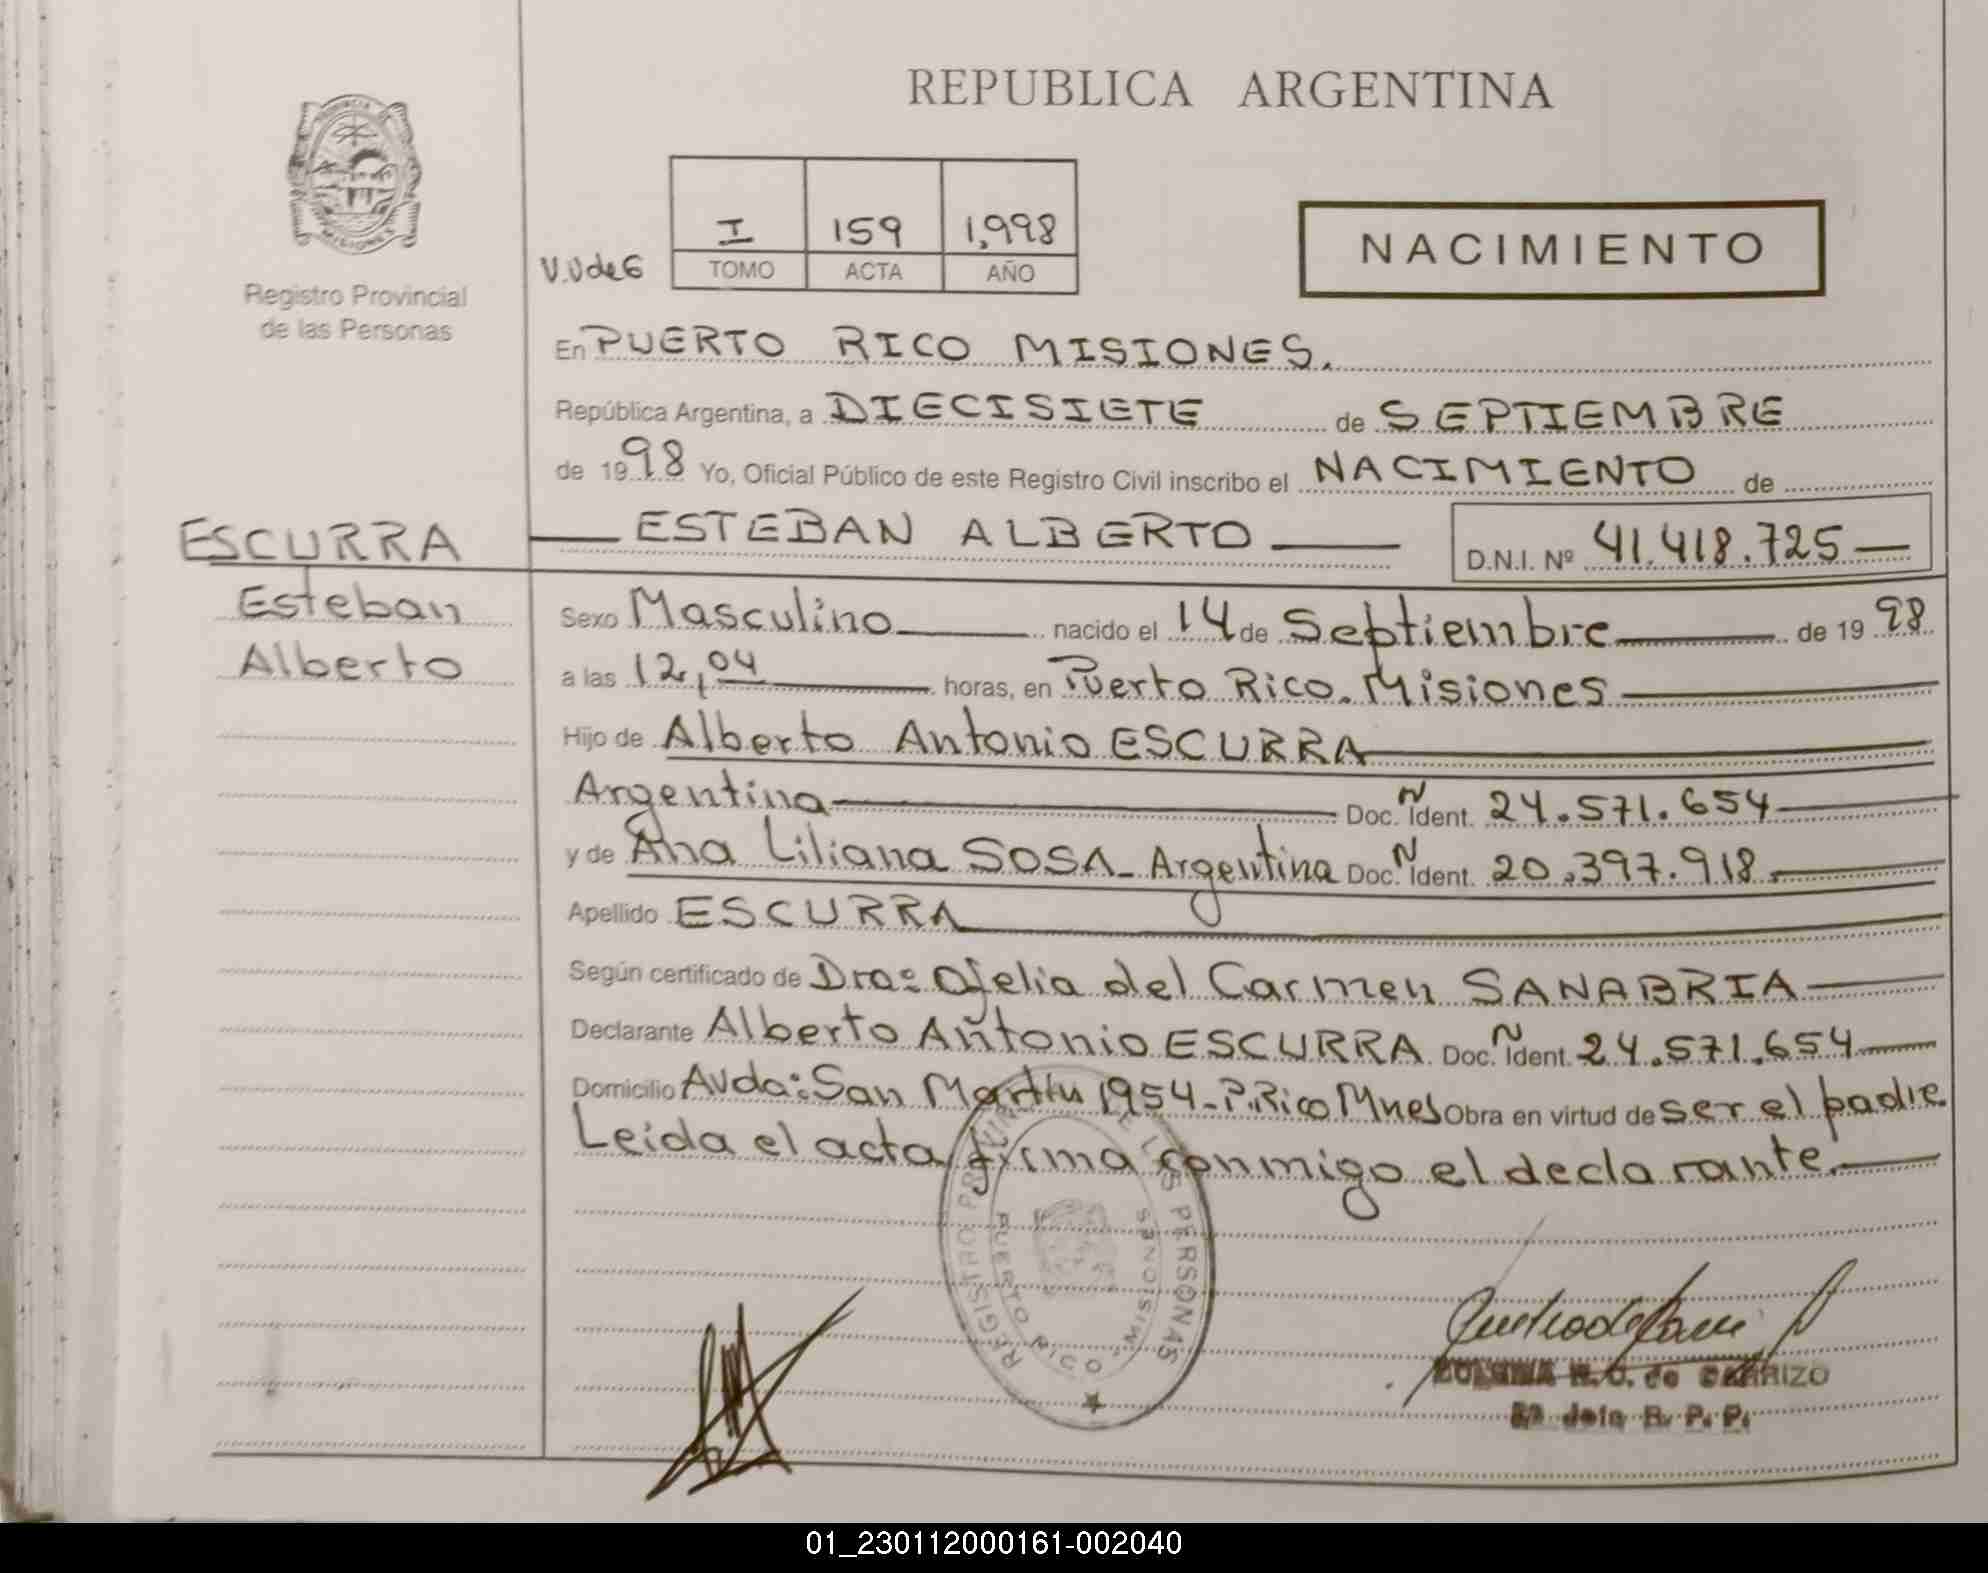 REPUBLICA ARGENTINA
PROVINCIA DE MISIONES
Registro Provincial
de las Personas
V.V de G
I 159 1,998
TOMO ACTA AÑO
NACIMIENTO
En PUERTO RICO MISIONES.
República Argentina, a DIECISIETE de SEPTIEMBRE
de 1998 Yo, Oficial Público de este Registro Civil inscribo el NACIMIENTO de
ESCURRA
Esteban
Alberto
ESTEBAN ALBERTO D.N.I. Nº 41.418.725
Sexo Masculino nacido el 14 de Septiembre de 1998
a las 12,04 horas, en Puerto Rico. Misiones
Hijo de Alberto Antonio ESCURRA
Argentina Doc. Ident. 24.571.654
y de Ana Liliana SOSA - Argentina Doc. Ident. 20.397.918
Apellido ESCURRA
Según certificado de Dra: Ofelia del Carmen SANABRIA
Declarante Alberto Antonio ESCURRA Doc. Ident. 24.571.654
Domicilio Avda: San Martín 1954 - P. Rico Mnes Obra en virtud de ser el padre.
Leida el acta firma conmigo el declarante.
REGISTRO PROVINCIAL DE LAS PERSONAS
PUERTO RICO MISIONES
de CARRIZO
R. P. P.
01_230112000161-002040